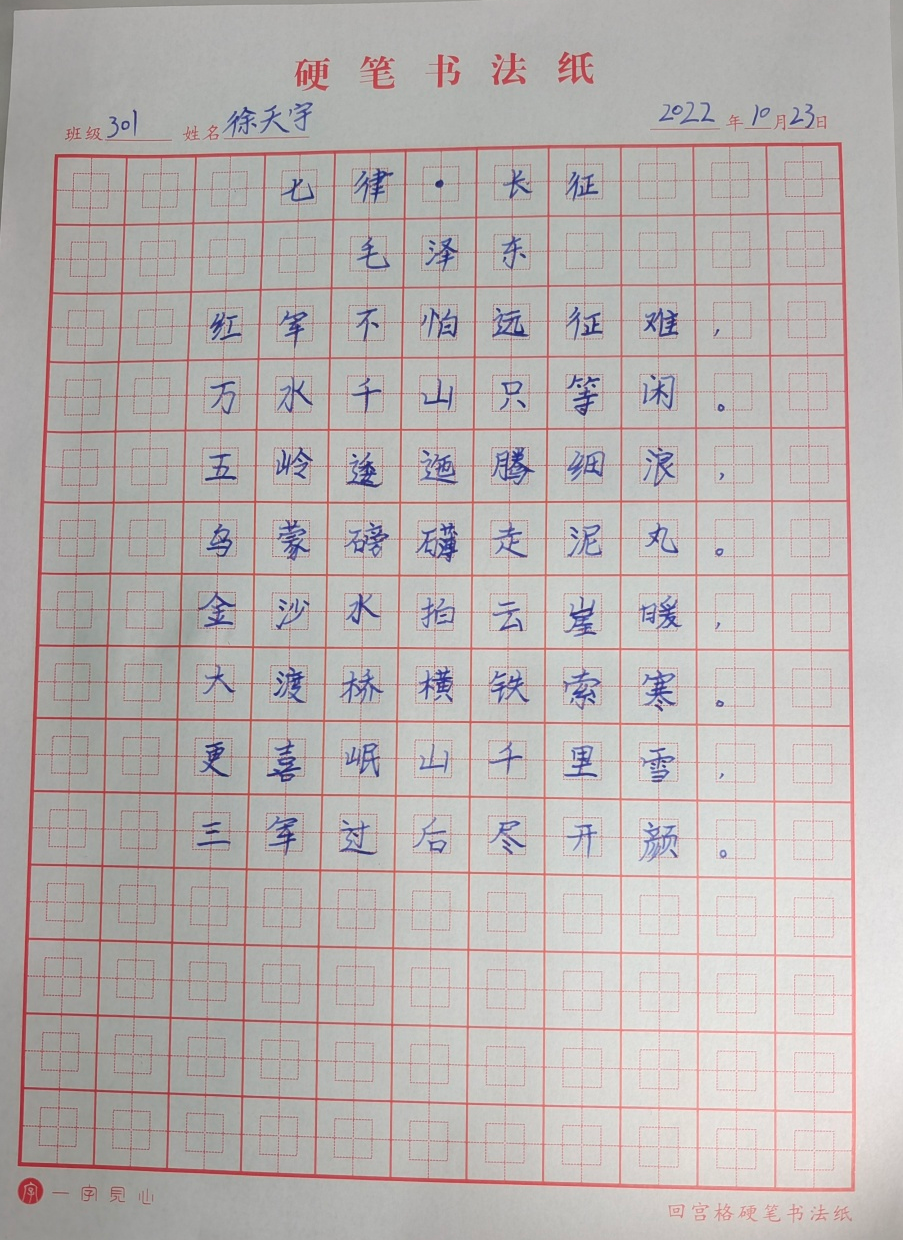 硬笔书法纸
班级301 姓名徐天宇 2022年10月23日
七律·长征
毛泽东
红军不怕远征难，
万水千山只等闲。
五岭逶迤腾细浪，
乌蒙磅礴走泥丸。
金沙水拍云崖暖，
大渡桥横铁索寒。
更喜岷山千里雪，
三军过后尽开颜。
字 一字见心
回宫格硬笔书法纸